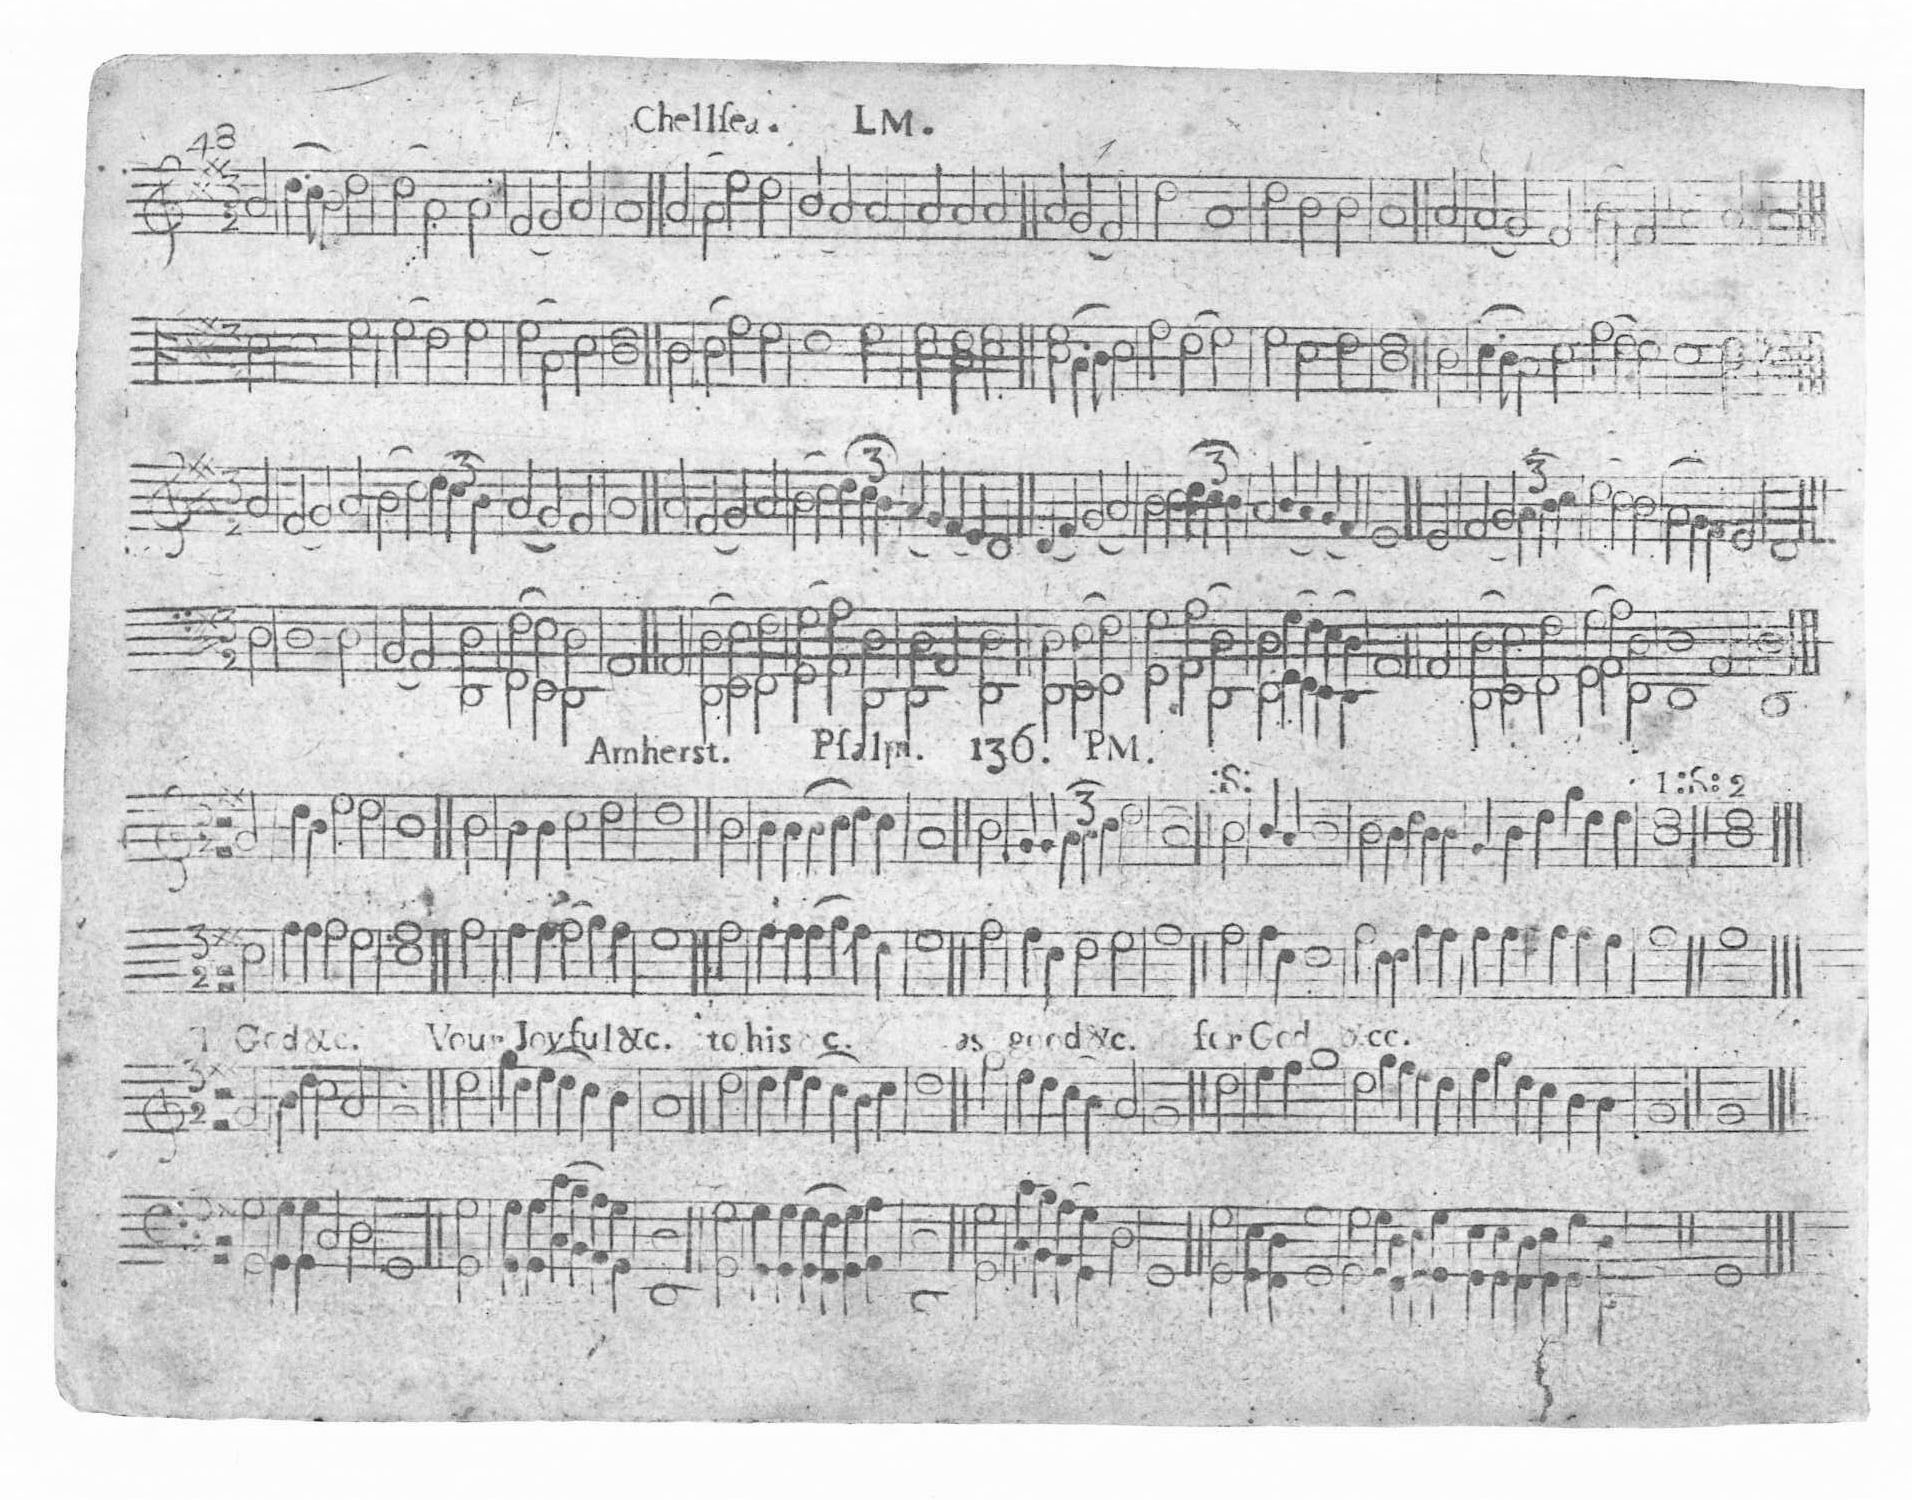 48
Chellſea. LM.
3
3
3
3
Amherst. Pſalm. 136. PM.
:S:
1:S:2
3
God &c. Your Joyful &c. to his &c. as good &c. for God &cc.